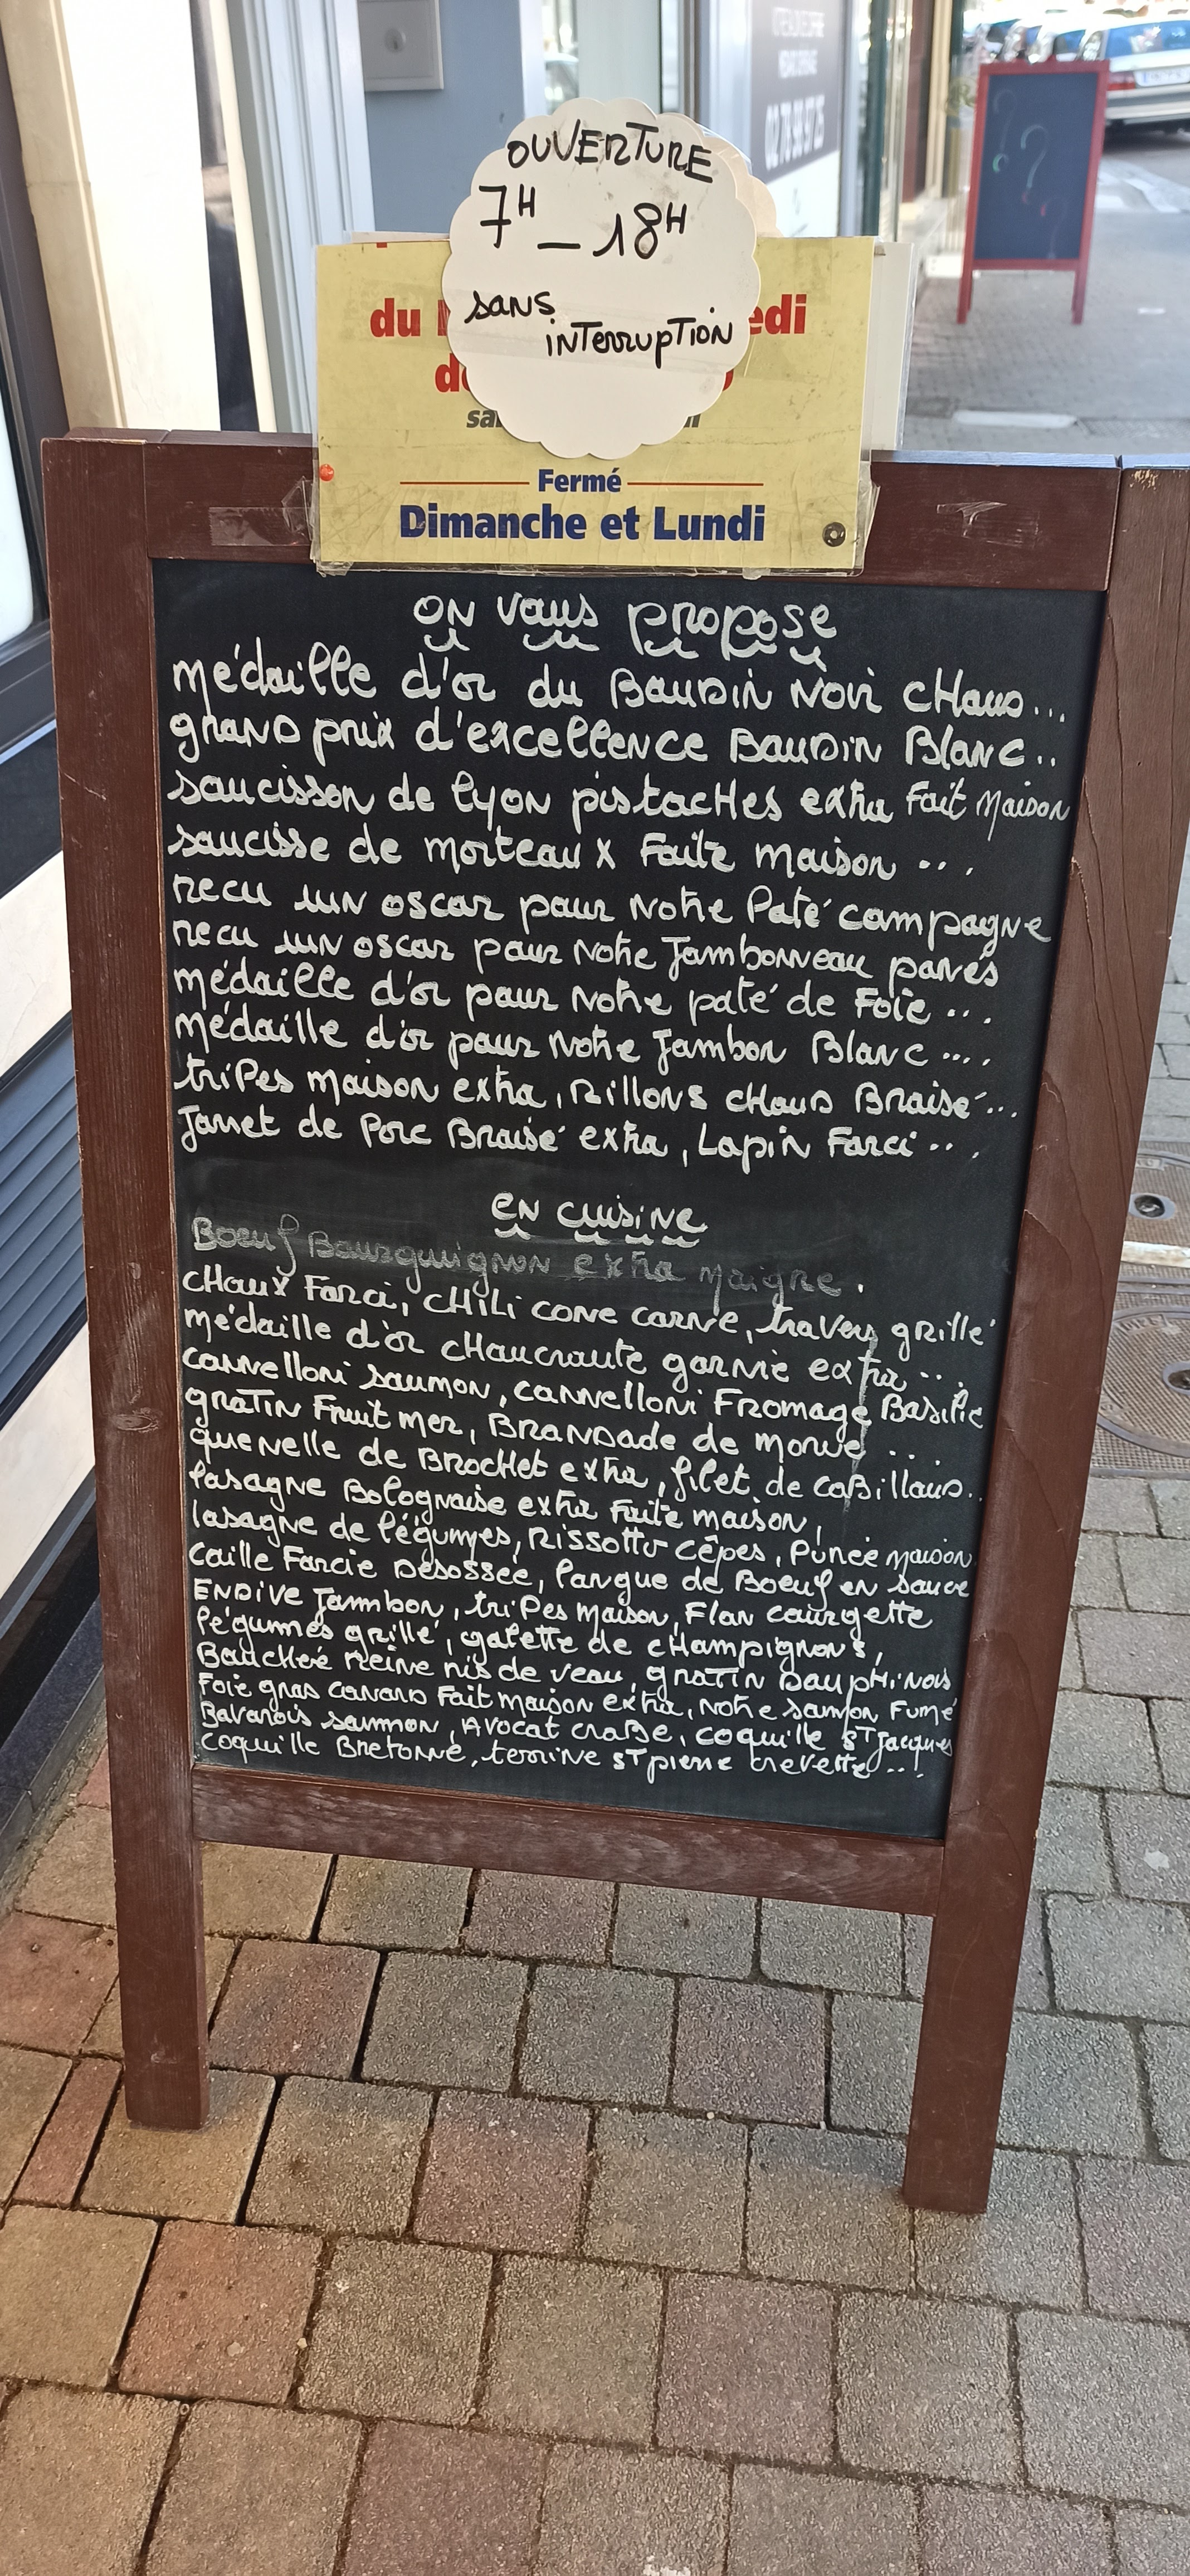 OUVERTURE
7H - 18H
sans
interruption
du edi
Fermé
Dimanche et Lundi
02 76 93 97 25
on vous propose
médaille d'or du Boudin Noir chaud...
grand prix d'excellence Boudin Blanc..
saucisson de lyon pistaches extra Fait Maison
saucisse de morteaux Faite maison ...
recu un oscar pour Notre Paté campagne
recu un oscar pour Notre Jambonneau panés
médaille d'or pour Notre paté de Foie ...
médaille d'or pour Notre Jambon Blanc ....
tripes maison extra, Rillons chaud Braisé...
Jarret de Porc Braisé extra, Lapin Farci ...
en cuisine
Boeuf Bourguignon extra maigre.
choux Farci, chili cone carne, travers grillé
médaille d'or choucroute garnie extra ...
cannelloni saumon, cannelloni Fromage Basilic
gratin Fruit mer, Brandade de morue ...
quenelle de Brochet extra, filet de caBillaud..
lasagne Bolognaise extra Faite maison,
lasagne de légumes, Rissotto cêpes, Purée maison
caille Farcie Desossée, langue de Boeuf en sauce
Endive Jambon, tripes maison, Flan courgette
légumes grillé, galette de champignons,
Bouchée reine ris de veau, gratin Dauphinois
Foie gras canard Fait maison extra, notre saumon Fumé
Bavarois saumon, Avocat craBe, coquille ST Jacques
coquille Bretonne, terrine ST pierre crevette...!